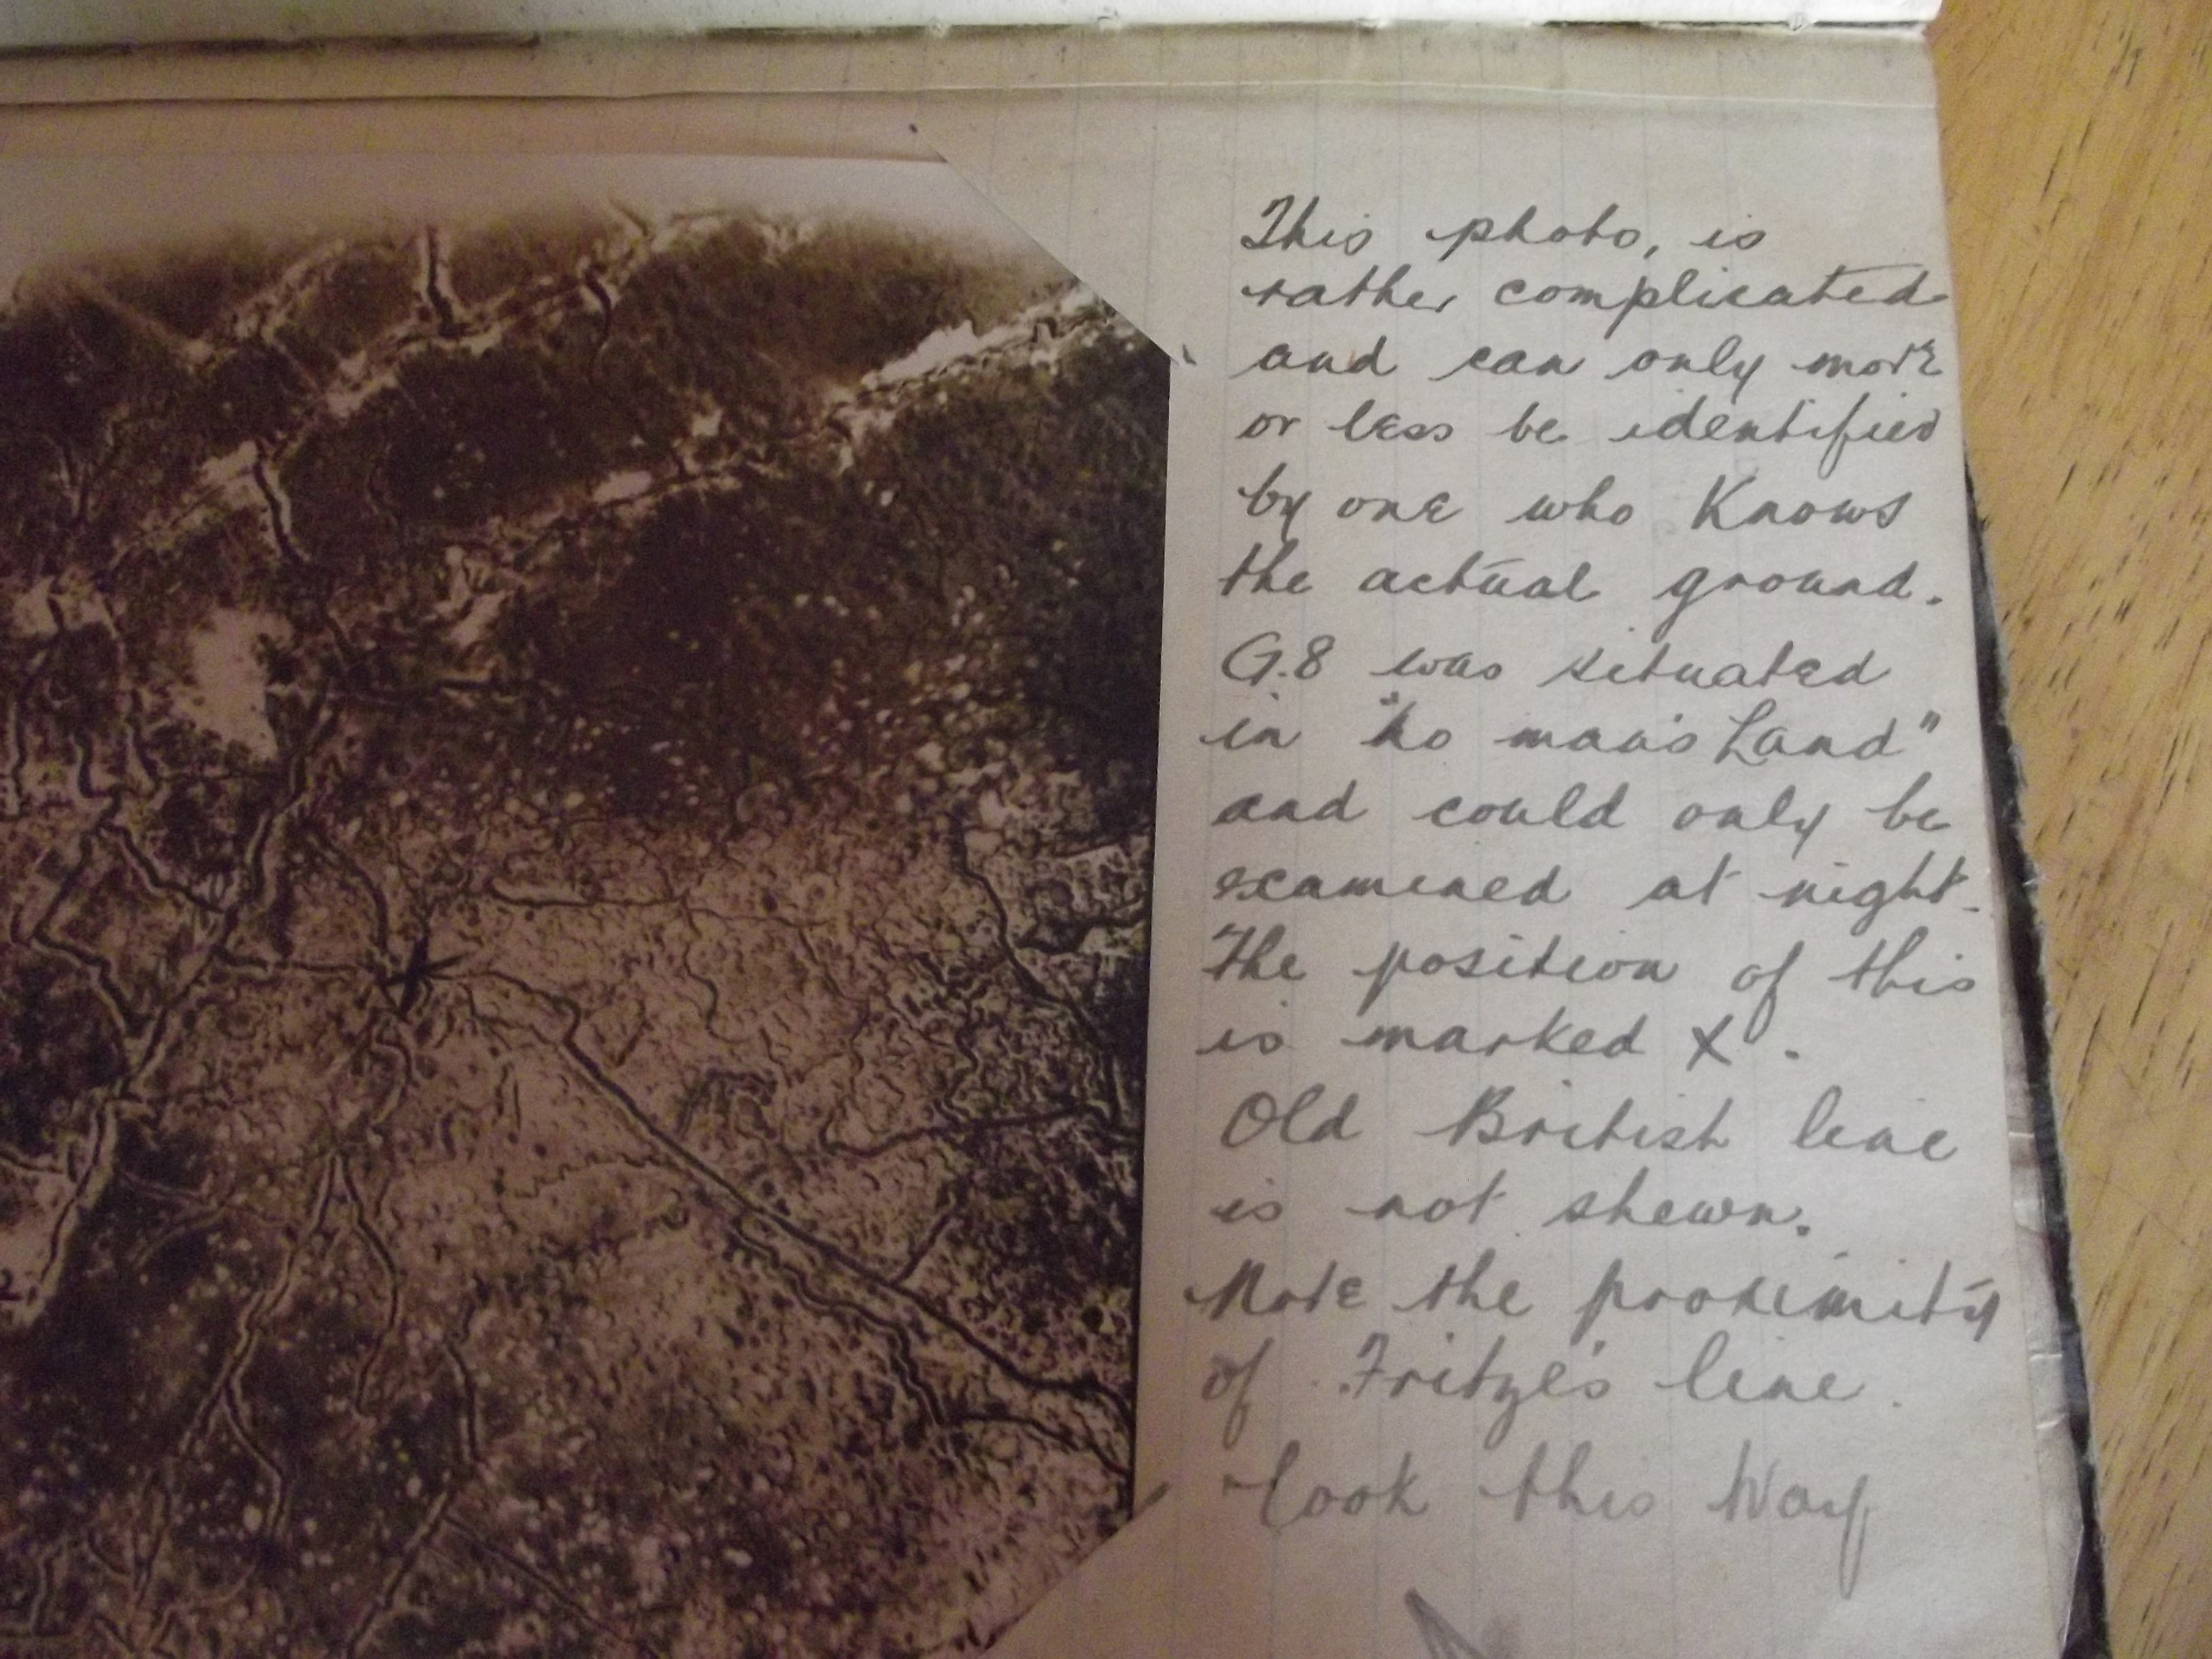 This photo, is
rather complicated
and can only more
or less be identified
by one who Knows
the actual ground.
G.8 was situated
in "no man's Land"
and could only be
examined at night.
The position of this
is marked X.
Old British line
is not shewn.
Note the proximity
of Fritze's line.
look this Way